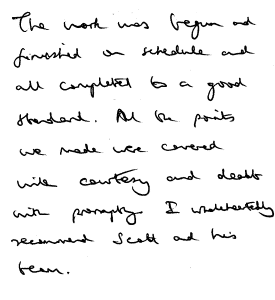 The work was begun and
finished on schedule and
all completed to a good
standard. All the points
we made were covered
with courtesy and dealt
with promptly. I wholeheartedly
recommend Scott and his
team.